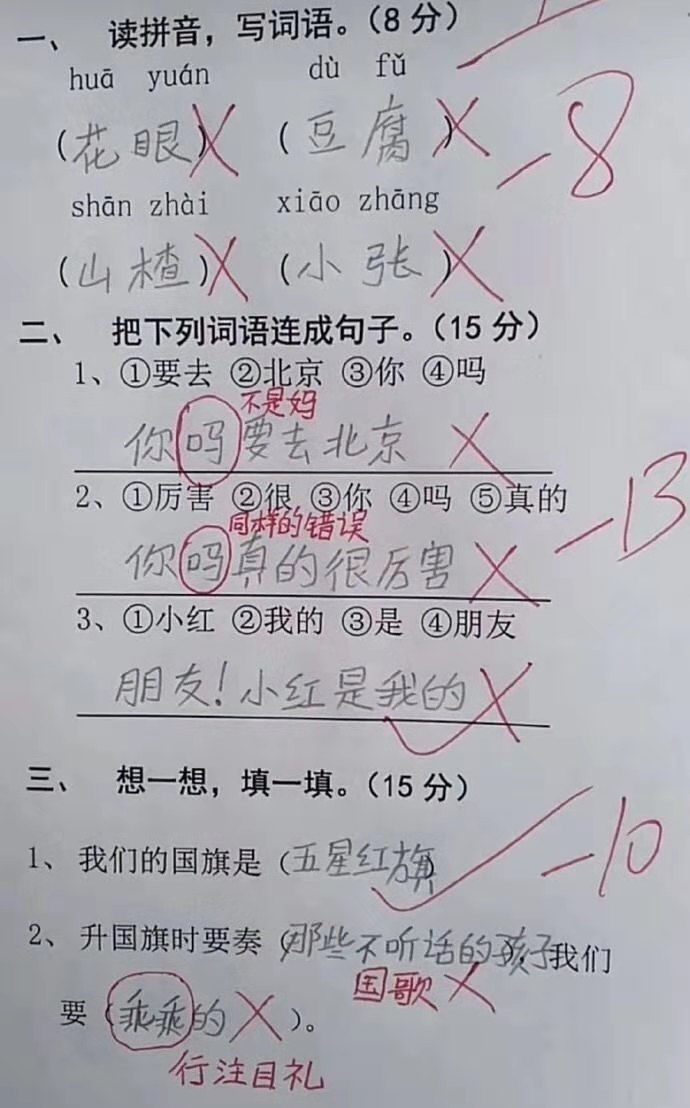 一、 读拼音，写词语。（8分）
huā yuán dù fǔ
（花眼） （豆腐） -8
shān zhài xiāo zhāng
（山楂） （小张）
二、 把下列词语连成句子。（15分）
1、①要去 ②北京 ③你 ④吗
不是妈
你吗要去北京
2、①厉害 ②很 ③你 ④吗 ⑤真的
同样的错误
你吗真的很厉害 -13
3、①小红 ②我的 ③是 ④朋友
朋友！小红是我的
三、 想一想，填一填。（15分）
1、我们的国旗是（五星红旗） -10
2、升国旗时要奏（那些不听话的孩子），我们
国歌
要（乖乖的）。
行注目礼